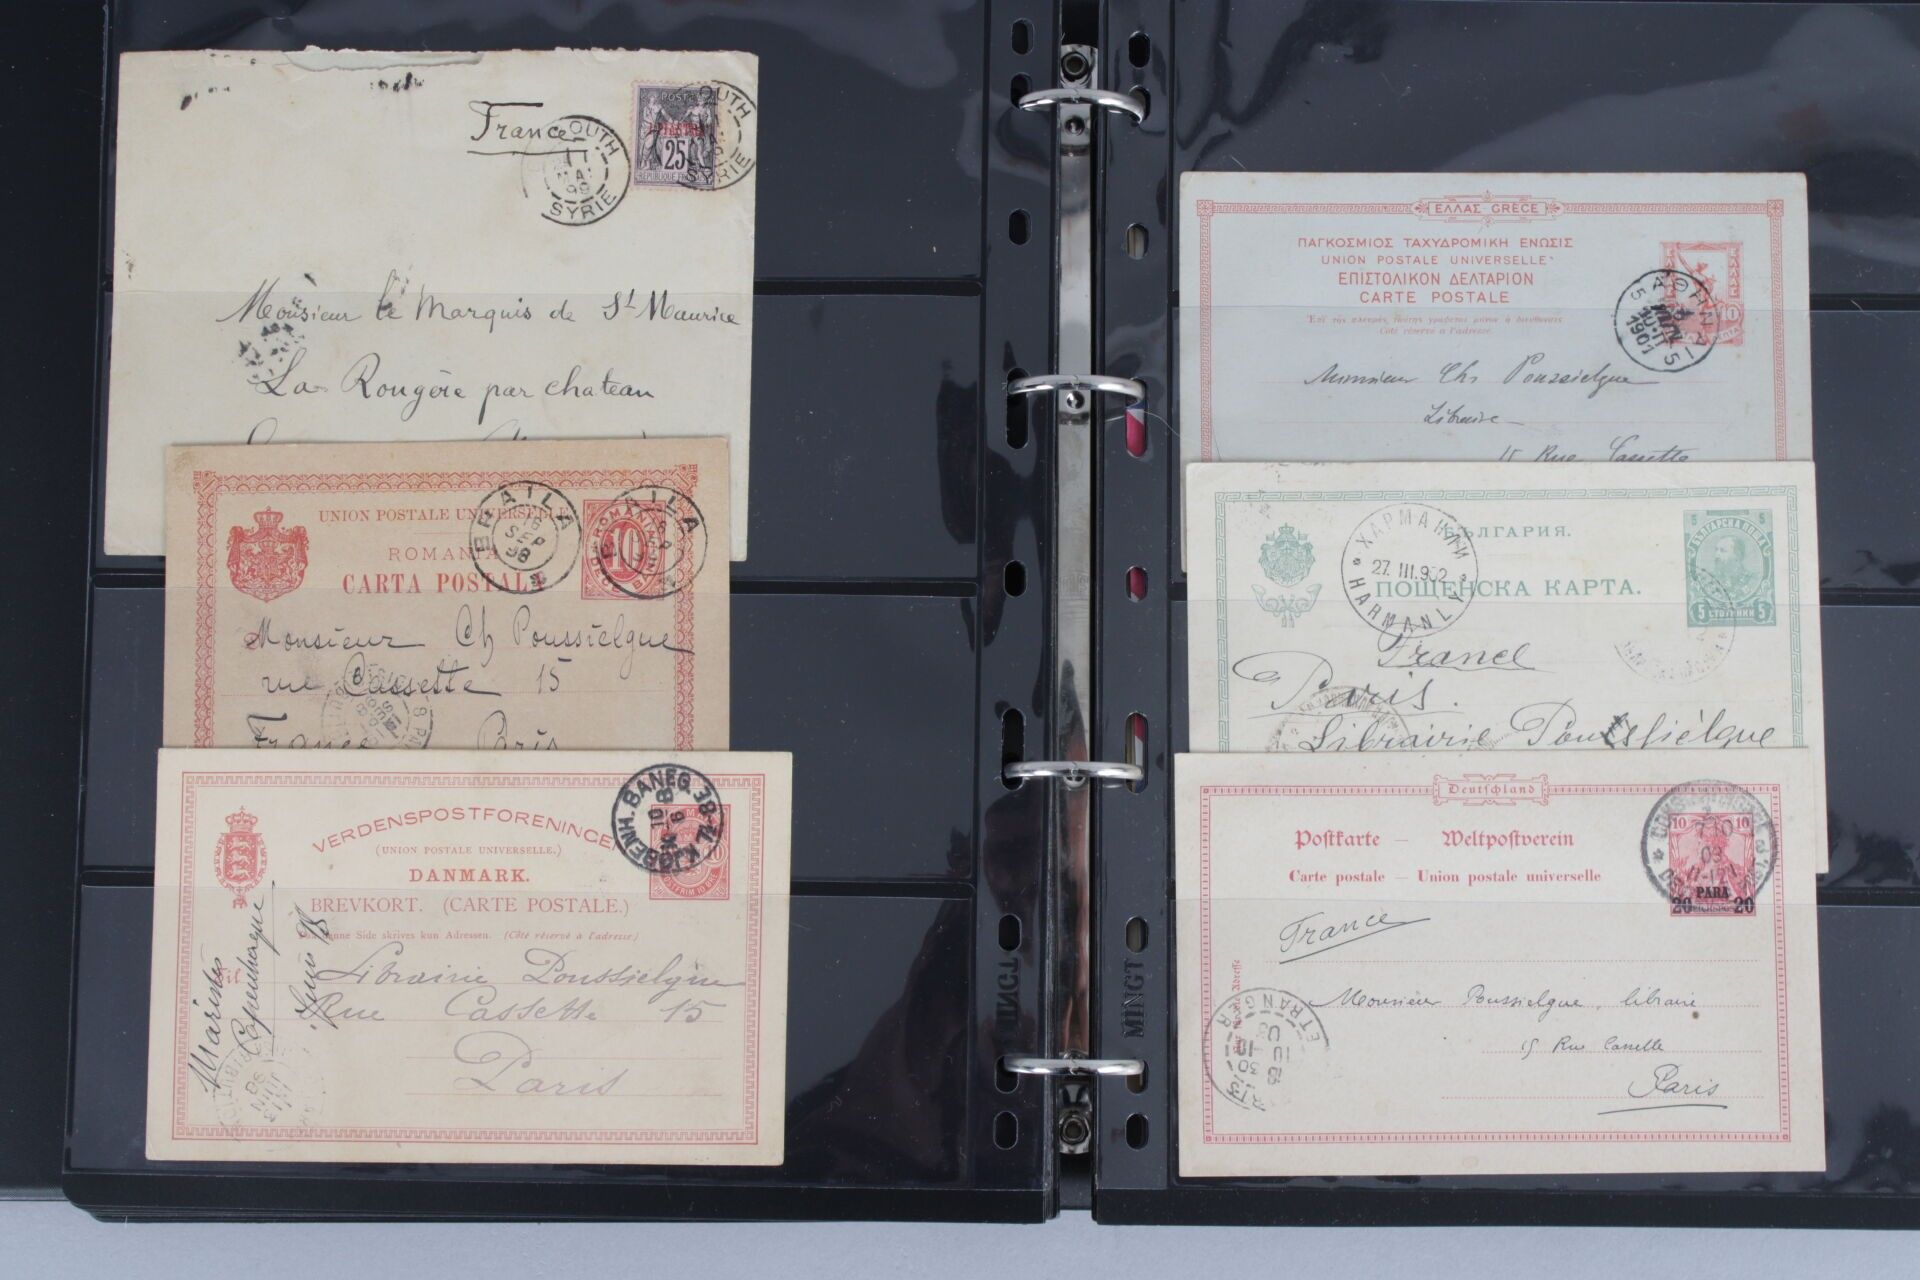 France
OUTH
11
MAI
99
SYRIE
POSTE
OUTH
SYRIE
25
Monsieur le Marquis de St Maurice
La Rougère par chateau
UNION POSTALE UNIVERSELLE
ROMANIA
CARTA POSTALA
BRAILA
16
SEP
98
BRAILA
10
Monsieur Ch Poussielgue
rue Cassette 15
France Paris
VERDENSPOSTFORENINGEN
(UNION POSTALE UNIVERSELLE.)
DANMARK.
BREVKORT. (CARTE POSTALE.)
Side skrives kun Adressen. (Côté réservé à l'adresse)
KJØBENH. BANEG. 38-74 K
10
Til
Librairie Poussielgue
Rue Cassette 15
Paris
Maristes
Copenhague
ΕΛΛΑΣ GRÈCE
ΠΑΓΚΟΣΜΙΟΣ ΤΑΧΥΔΡΟΜΙΚΗ ΕΝΩΣΙΣ
UNION POSTALE UNIVERSELLE
ΕΠΙΣΤΟΛΙΚΟΝ ΔΕΛΤΑΡΙΟΝ
CARTE POSTALE
Côté réservé à l'adresse.
ΑΘΗΝΑΙ
1901
10
Monsieur Ch Poussielgue
Libraire
15 Rue Cassette
БЪЛГАРИЯ.
ПОЩЕНСКА КАРТА.
ХАРМАНЛИ
27.III.902
HARMANLY
5 СТОТИНКИ 5
France
Paris.
Librairie Poussielgue
Deutschland
Postkarte — Weltpostverein
Carte postale — Union postale universelle
10 10
7 10
03
11-12
PARA
20 20
France
Monsieur Poussielgue, libraire
15 Rue Cassette
Paris
ETRANGER
MINGT
MINGT